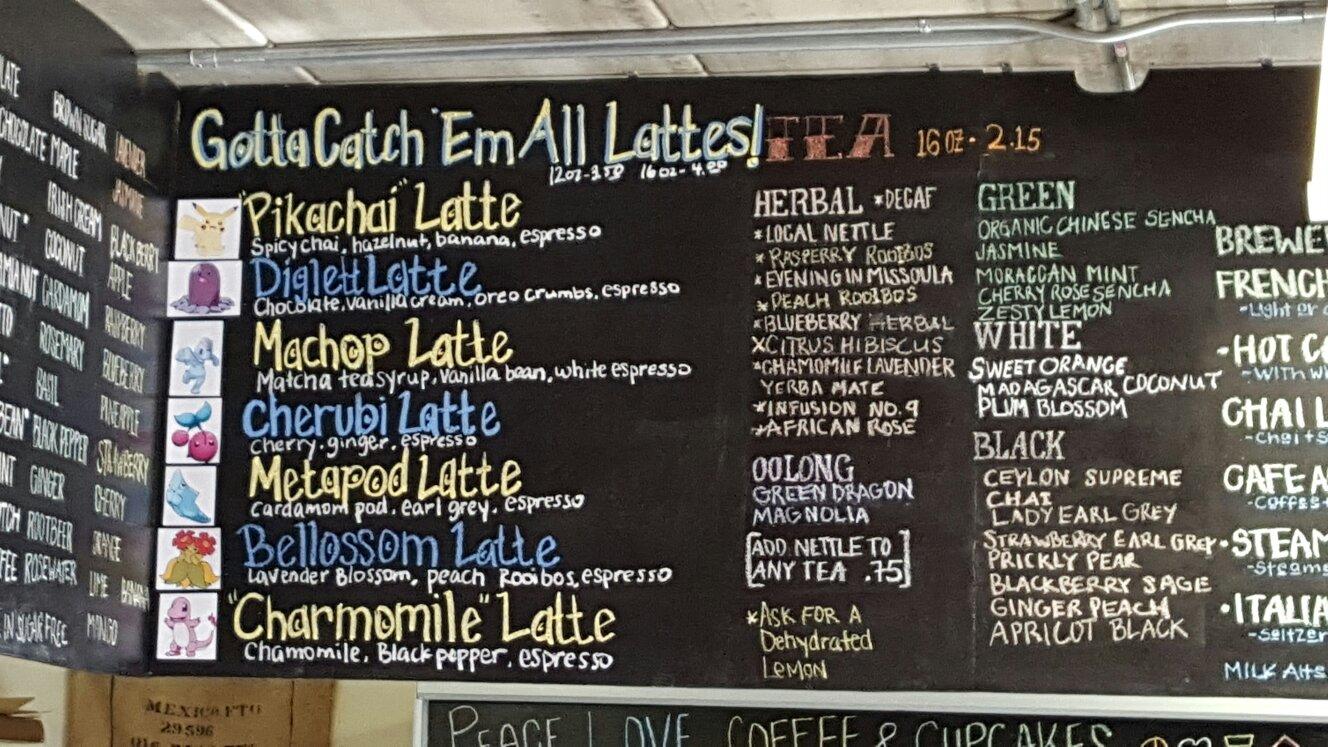 BROWN SUGAR
LAVENDER
CHOCOLATE
MAPLE
JASMINE
IRISH CREAM
BLACKBERRY
COCONUT
APPLE
CARDAMOM
RASPBERRY
ROSEMARY
BLUEBERRY
BASIL
PINEAPPLE
BLACK PEPPER
STRAWBERRY
GINGER
CHERRY
ROOTBEER
ORANGE
ROSEWATER
LIME
BANANA
IN SUGAR FREE
MANGO
Gotta Catch 'Em All Lattes!
12oz-3.50 16oz-4.00
"Pikachai" Latte
Spicy chai, hazelnut, banana, espresso
Diglett Latte
Chocolate, vanilla cream, oreo crumbs, espresso
Machop Latte
Matcha tea syrup, vanilla bean, white espresso
Cherubi Latte
Cherry, ginger, espresso
Metapod Latte
Cardamom pod, earl grey, espresso
Bellossom Latte
Lavender Blossom, peach Rooibos, espresso
"Charmomile" Latte
Chamomile, Black pepper, espresso
TEA 16 oz - 2.15
HERBAL *DECAF
*LOCAL NETTLE
*RASPERRY ROOIBOS
*EVENING IN MISSOULA
*PEACH ROOIBOS
*BLUEBERRY HERBAL
XCITRUS HIBISCUS
*CHAMOMILE LAVENDER
YERBA MATE
*INFUSION NO.9
*AFRICAN ROSE
OOLONG
GREEN DRAGON
MAGNOLIA
[ADD NETTLE TO
ANY TEA .75]
*ASK FOR A
Dehydrated
LEMON
GREEN
ORGANIC CHINESE SENCHA
JASMINE
MORACCAN MINT
CHERRY ROSE SENCHA
ZESTY LEMON
WHITE
SWEET ORANGE
MADAGASCAR COCONUT
PLUM BLOSSOM
BLACK
CEYLON SUPREME
CHAI
LADY EARL GREY
STRAWBERRY EARL GREY
PRICKLY PEAR
BLACKBERRY SAGE
GINGER PEACH
APRICOT BLACK
BREWE
FRENCH
-Light or
·HOT CO
-With
CHAI L
-Chai
CAFE A
-Coffee
·STEAM
-Steame
·ITALIA
-Seltzer
MILK Alts
MEXICO
29596
PEACE LOVE COFFEE & CUPCAKES